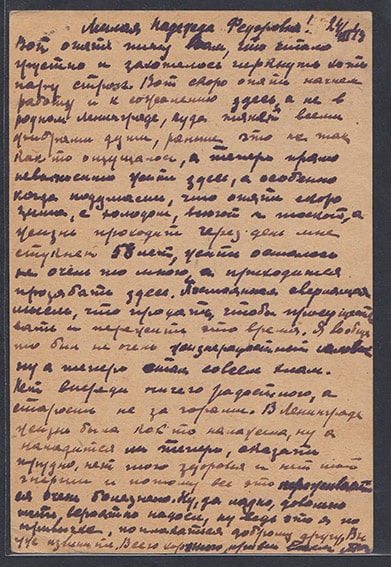 Милая Надежда Федоровна! 24/VIII 43
Вот опять пишу Вам, что читаю
грустно и захотелось черкнуть хоть
пару строк. Вот скоро опять начнем
работу и к сожалению здесь, а не в
родном Ленинграде, куда тянет всеми
фибрами души, раньше это не так
как то ощущалось, а теперь прямо
невыносимо жить здесь, а особенно
когда подумаешь, что опять скоро
зима, с холодом, вьюгой и тоской, а
жизнь проходит через день мне
стукнет 58 лет, жить осталось
не очень то много, а приходится
прозябать здесь. Постоянная сверлящая
мысль, что продать, чтобы просущество
вать и пережить это время. Я вообще
то был не очень жизнерадостный человек
ну а теперь стал совсем
Нет впереди ничего радостного, а
старость не за горами. В Ленинграде
жизнь была как то налажена, ну а
наладится ли теперь, сказать
трудно, нет того здоровья и нет той
энергии и потому все это переживает
ся очень болезненно. Ну, да ладно, довольно
ныть, вероятно надоел, ну ведь это я по
привычке, поплакаться доброму другу, Вы
уж извините. Всего хорошего, привет